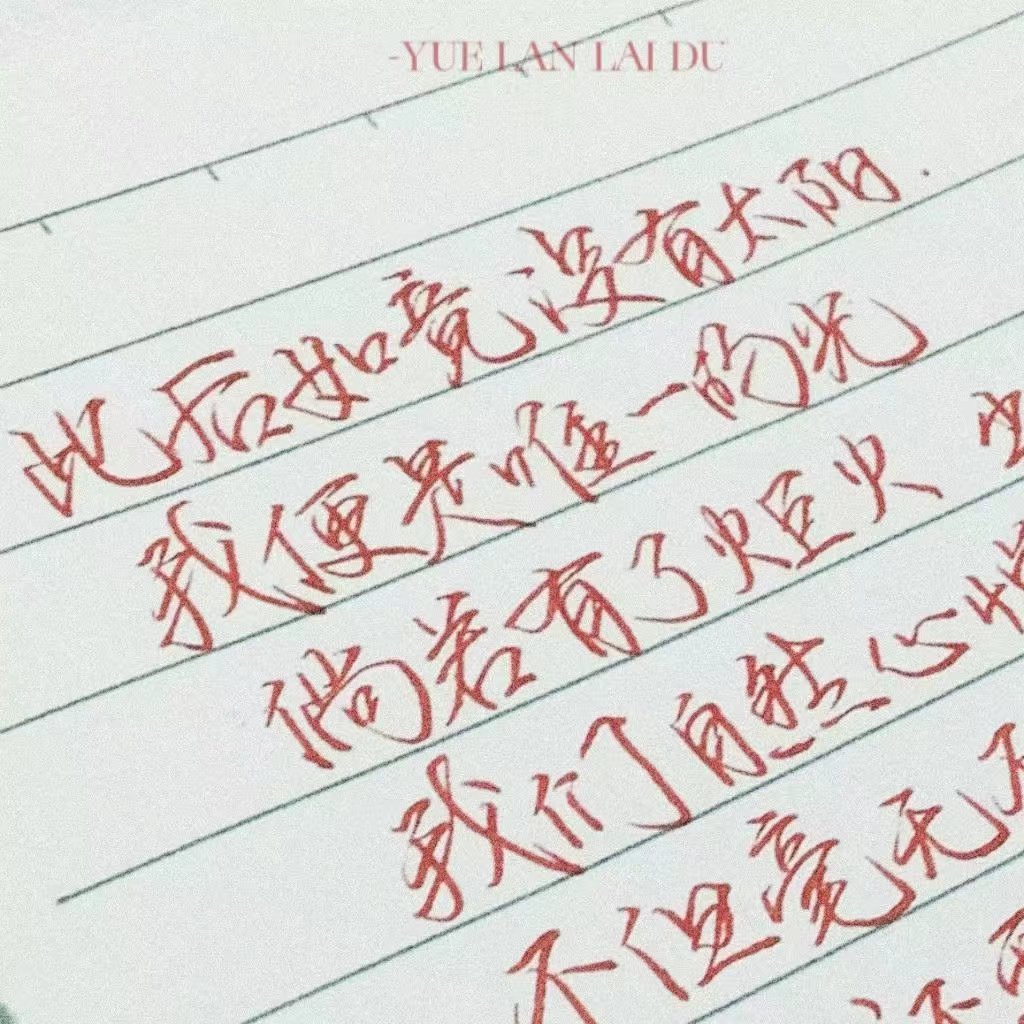 -YUE LAN LAI DU
此后如竟没有太阳.
我便是唯一的光
倘若有了炬火 出
我们自然心悦
不但毫无不
还要